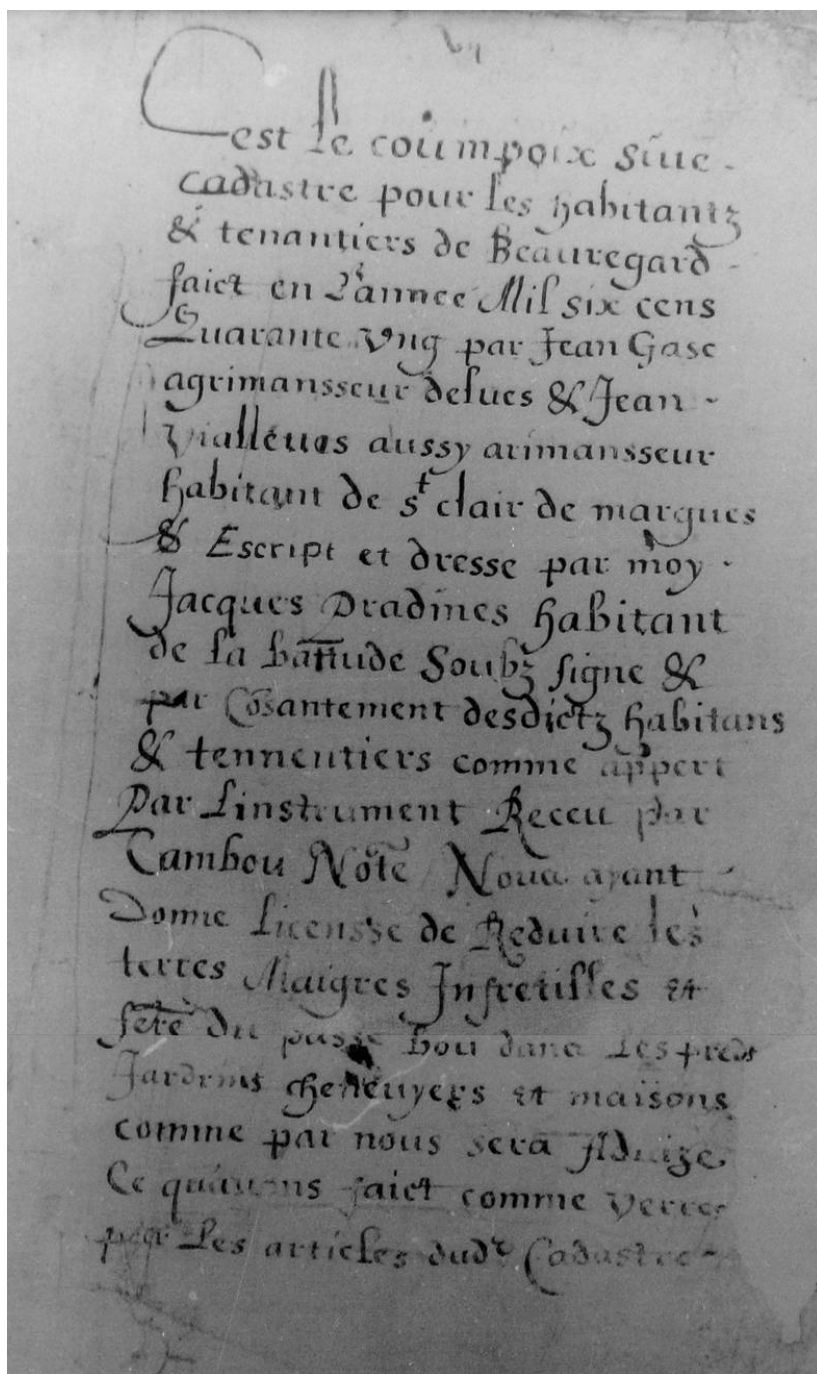 Cest le coumpoix siue
cadastre pour les habitantz
& tenantiers de Beauregard
faict en l'annee Mil six cens
Quarante Vng par Jean Gasc
agrimansseur delues & Jean
vialleues aussy arimansseur
habitant de st clair de margues
& Escript et dresse par moy
Jacques Dradines habitant
de la battude Soubz signe &
par Cosantement desdictz habitans
& tenneutiers comme appert
Par Linstrument Receu par
Cambou Note Noua ayant
Donne Licensse de Reduire les
terres Maigres Infretilles et
du bou dana Les preds
Jardrins cheneuyers et maisons
comme par nous sera Aduize
Ce quauons faict comme verres
par Les articles dudt Cadastre